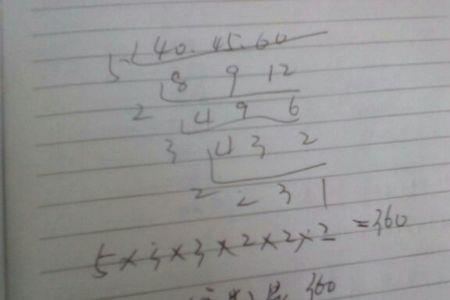 5 40. 45. 60
2 8 9 12
3 4 9 6
2 4 3 2
2 3 1
5×3×3×2×2×2=360
360